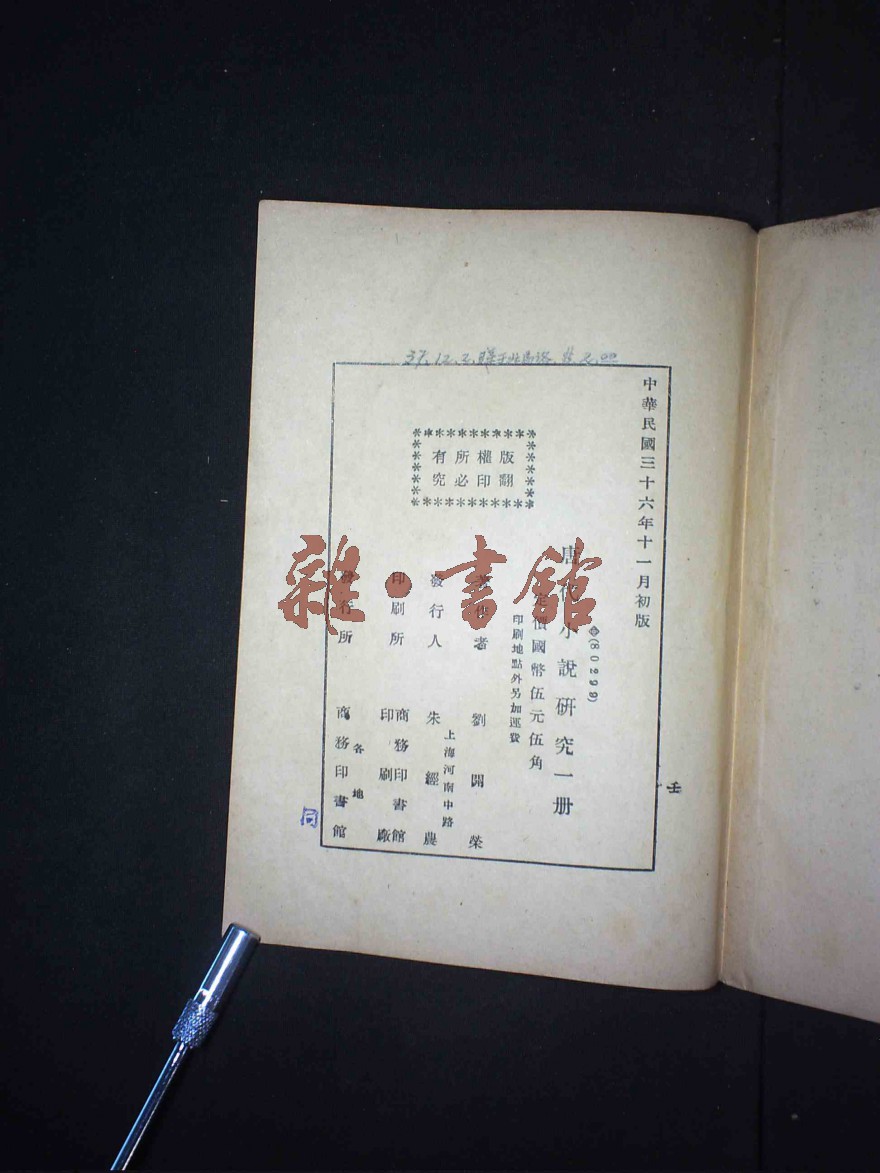 中華民國三十六年十一月初版
◆(80299)
唐代小說研究一册
定價國幣伍元伍角
印刷地點外另加運費
版權所有
翻印必究
著作者 劉開榮
上海河南中路
發行人 朱經農
印刷所 商務印書館
印刷廠
各地
發行所 商務印書館
壬
同
雜·書館